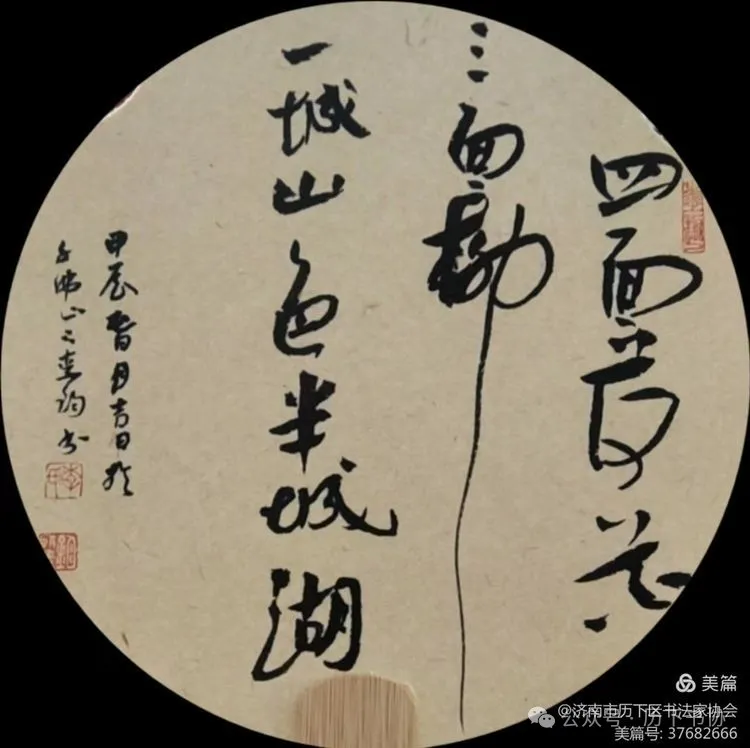 四面荷花
三面柳
一城山色半城湖
甲辰春月吉日於
千佛山之书
美篇
@济南市历下区书法家协会
公众号·历下书协
美篇号: 37682666